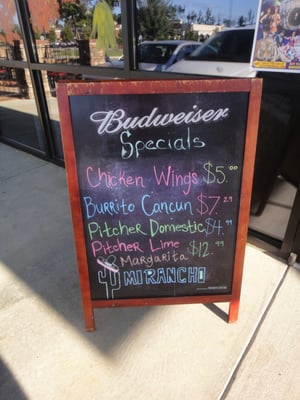 Budweiser
Specials
Chicken Wings $5.00
Burrito Cancun $7.29
Pitcher Domestic $4.99
Pitcher Lime $12.99
Margarita
MI RANCHO